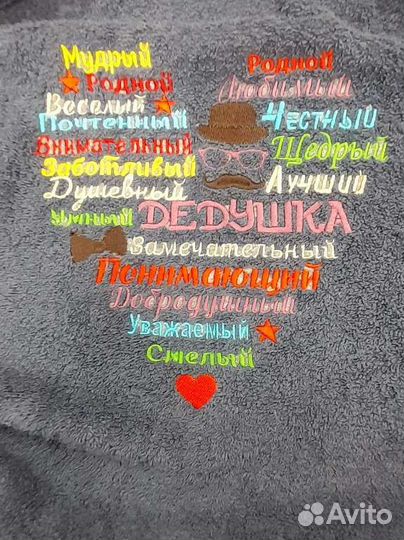 Мудрый
Родной
Веселый
Почтенный
Внимательный
Заботливый
Душевный
Умный
Родной
Любимый
Честный
Щедрый
Лучший
ДЕДУШКА
Замечательный
Понимающий
Добродушный
Уважаемый
Смелый
Avito